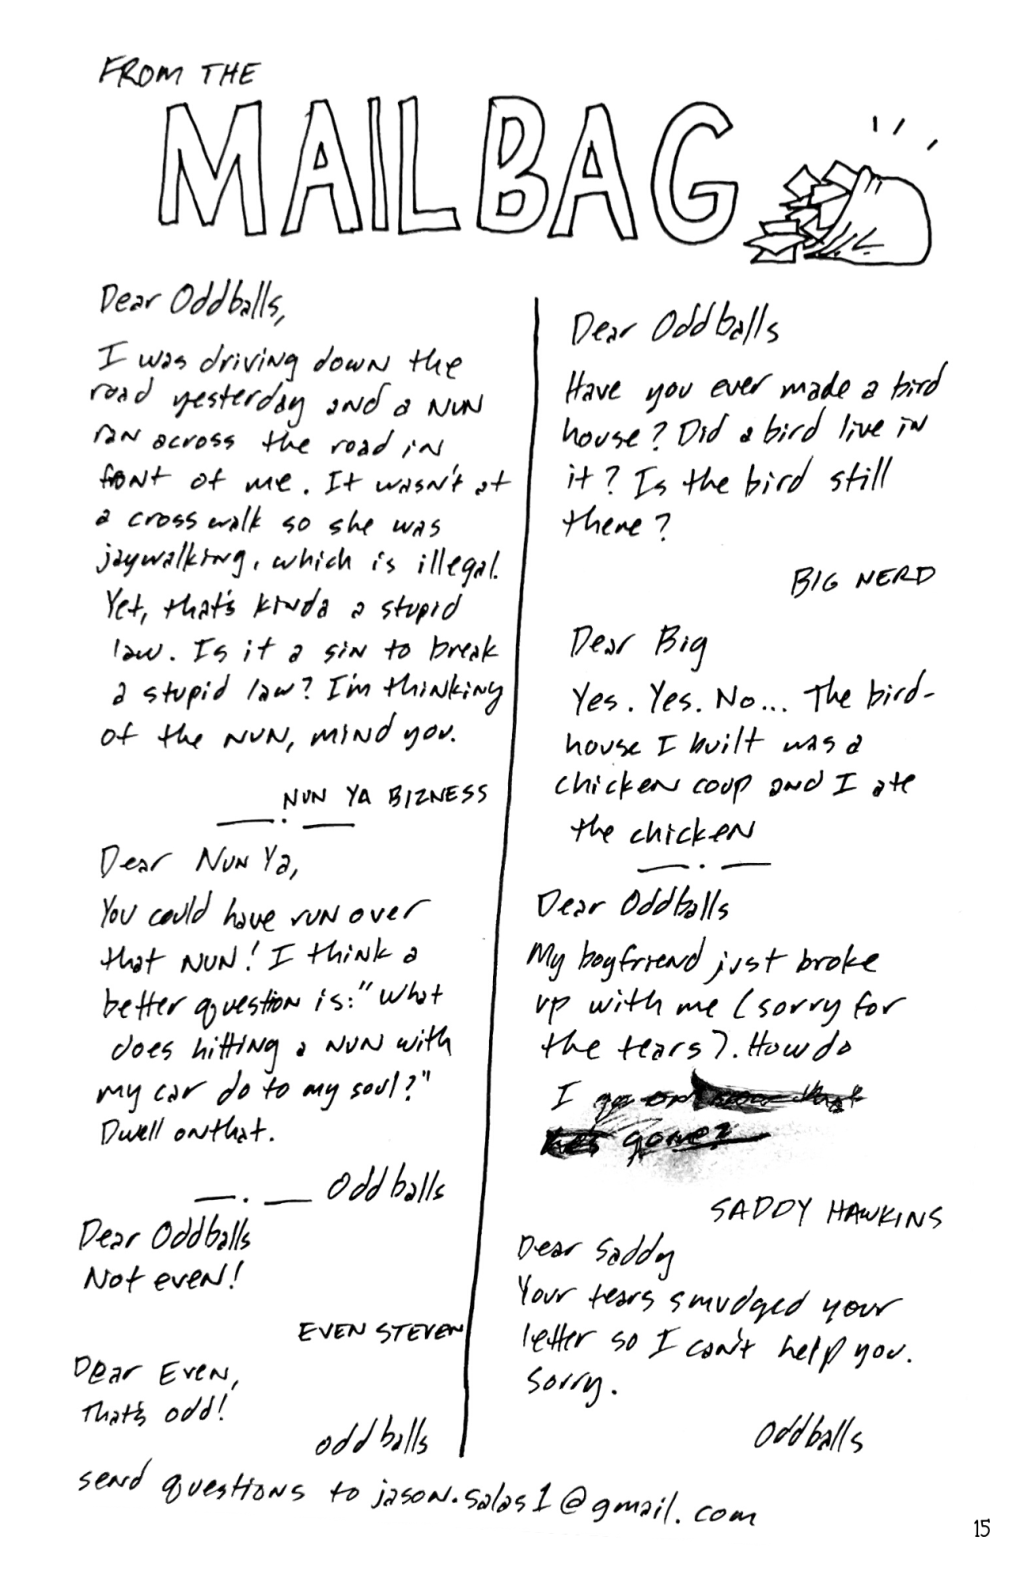 FROM THE
MAILBAG
Dear Oddballs,
I was driving down the
road yesterday and a NUN
ran across the road in
font of me. It wasn't at
a cross walk so she was
jaywalking, which is illegal.
Yet, that's kinda a stupid
law. Is it a sin to break
a stupid law? I'm thinking
of the NUN, mind you.
NUN YA BIZNESS
Dear Nun Ya,
You could have run over
that NUN! I think a
better question is: "What
does hitting a NUN with
my car do to my soul?"
Dwell on that.
Oddballs
Dear Oddballs
Not even!
EVEN STEVEN
Dear Even,
That's odd!
oddballs
Dear Oddballs
Have you ever made a bird
house? Did a bird live in
it? Is the bird still
there?
BIG NERD
Dear Big
Yes. Yes. No... The bird-
house I built was a
chicken coup and I ate
the chicken
Dear Oddballs
My boyfriend just broke
up with me (sorry for
the tears). How do
I go on that
he's gone?
SADDY HAWKINS
Dear Saddy
Your tears smudged your
letter so I can't help you.
Sorry.
Oddballs
send questions to jason.salas1@gmail.com
15